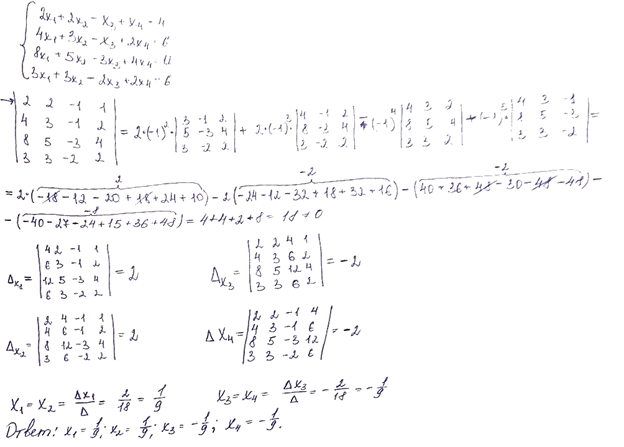 2x₁+2x₂-x₃+x₄=4
4x₁+3x₂-x₃+2x₄=6
8x₁+5x₂-3x₃+4x₄=12
3x₁+3x₂-2x₃+2x₄=6
|2 2 -1 1; 4 3 -1 2; 8 5 -3 4; 3 3 -2 2| = 2·(-1)²·|3 -1 2; 5 -3 4; 3 -2 2| + 2·(-1)³·|4 -1 2; 8 -3 4; 3 -2 2| - (-1)⁴|4 3 2; 8 5 4; 3 3 2| + (-1)⁵·|4 3 -1; 8 5 -3; 3 3 -2| =
2 -2 -2
= 2·(-18-12-20+18+24+10) - 2(-24-12-32+18+32+16) - (40+36+48-30-48-48) -
-8
- (-40-27-24+15+36+48) = 4+4+2+8 = 18 ≠ 0
Δx₁ = |4 2 -1 1; 6 3 -1 2; 12 5 -3 4; 6 3 -2 2| = 2 Δx₃ = |2 2 4 1; 4 3 6 2; 8 5 12 4; 3 3 6 2| = -2
Δx₂ = |2 4 -1 1; 4 6 -1 2; 8 12 -3 4; 3 6 -2 2| = 2 ΔX₄ = |2 2 -1 4; 4 3 -1 6; 8 5 -3 12; 3 3 -2 6| = -2
X₁ = X₂ = Δx₁/Δ = 2/18 = 1/9 X₃ = X₄ = Δx₃/Δ = -2/18 = -1/9
Ответ: x₁ = 1/9; x₂ = 1/9; x₃ = -1/9; x₄ = -1/9.